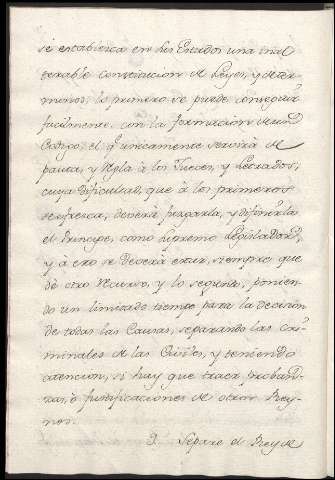 se establesca en los Estados una inal
terable constitucion de Leyes, y deter
minos; lo primero se puede conseguir
facilmente con la formacion de un
Codigo, el qe. unicamente servirá de
pauta, y regla à los Jueces, y Letrados,
cuya dificultad, que à los primeros
se ofresca, deverá prepararla, y difinirla
el Principe, como supremo Legislador,
y à eso se deverá estar, siempre que
dè otro recurso, y lo segundo, ponien
do un limitado tiempo para la decision
de todas las Causas, separando las cri
minales de las Civiles, y teniendo
atencion, si hay que traer proban
zas, ò justificaciones de otros Rey
nos.
9. Separe el Rey de